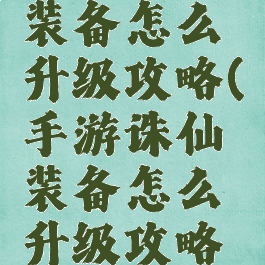 装备怎么
升级攻略(
手游诛仙
装备怎么
升级攻略